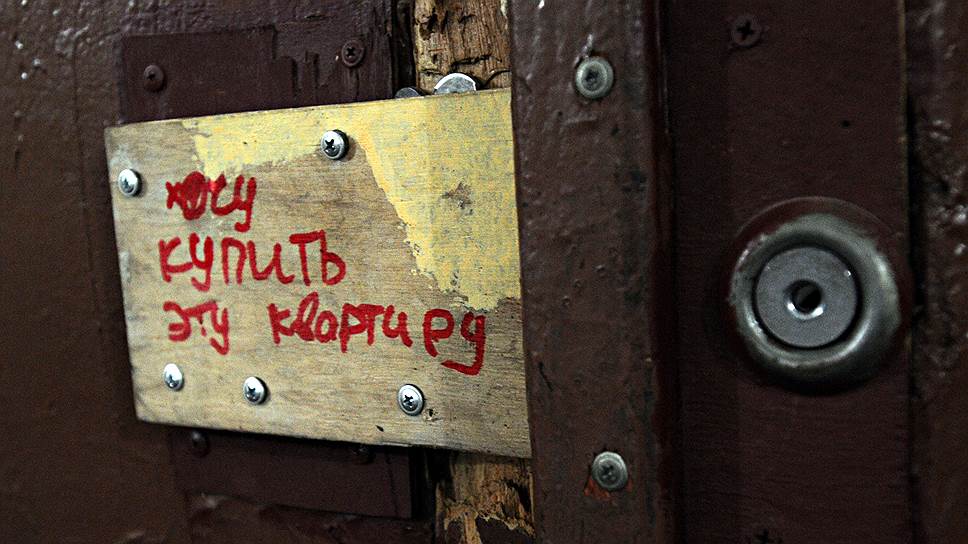 хочу
купить
эту квартиру